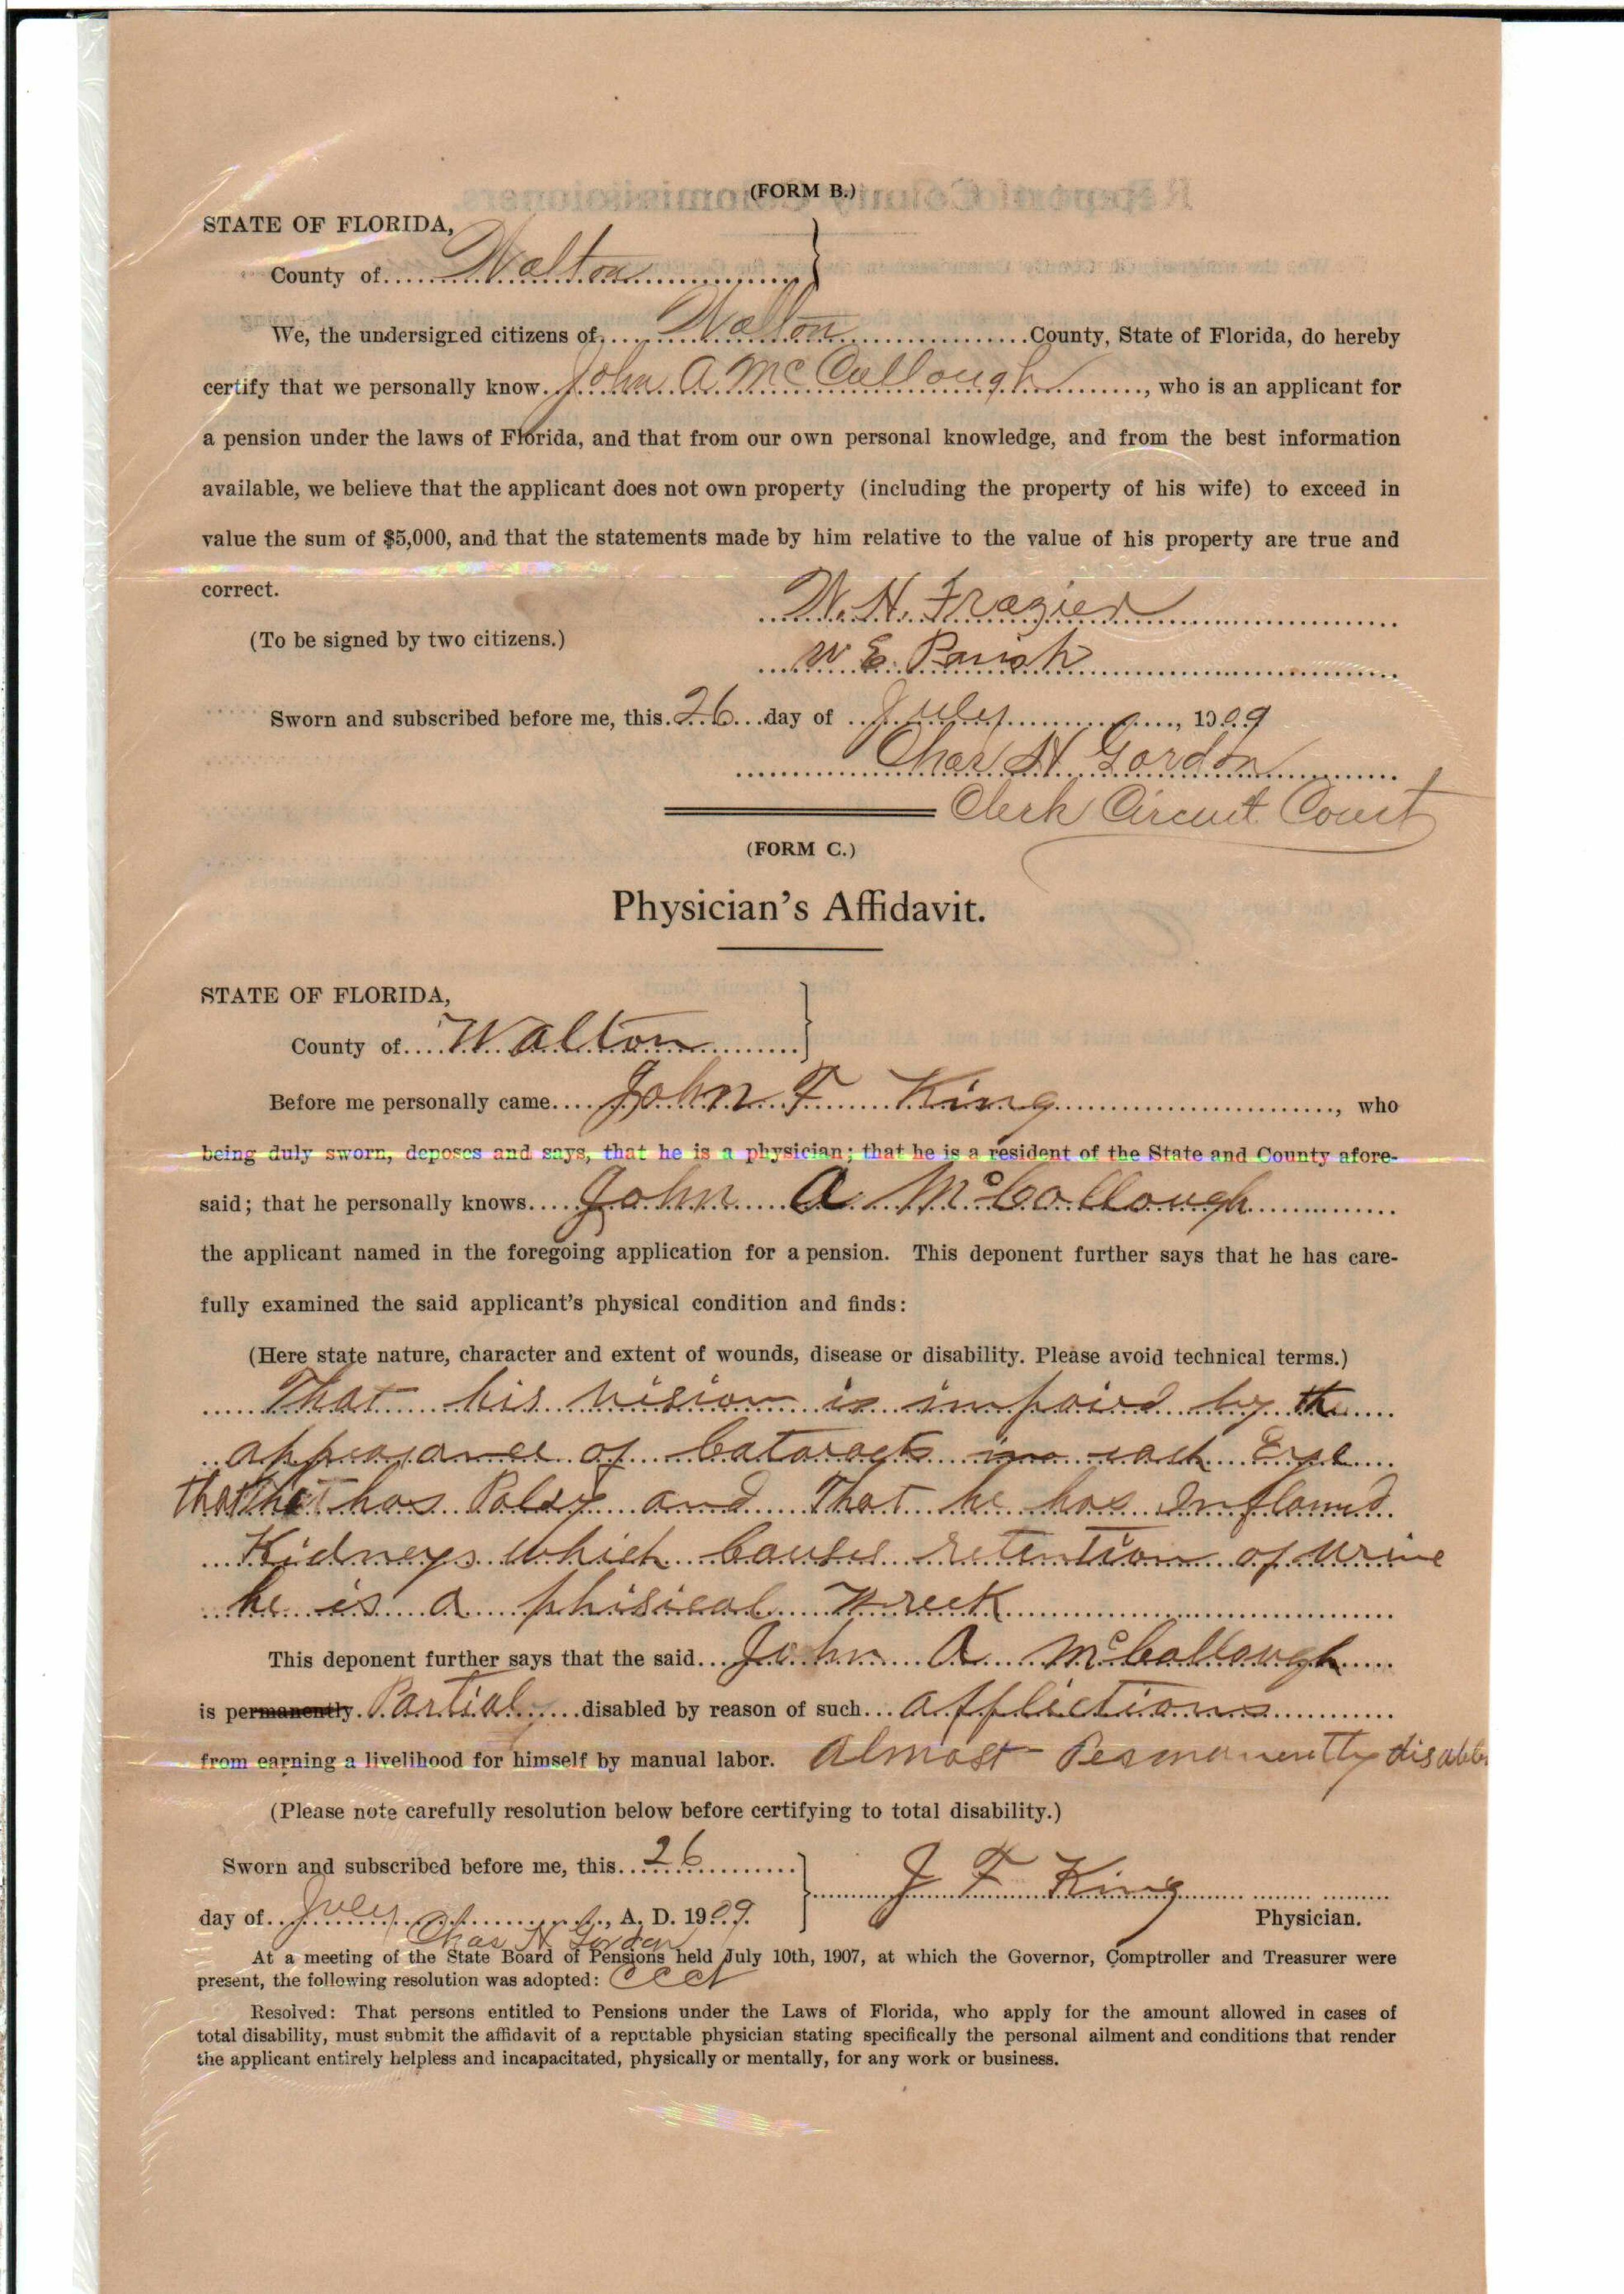 (FORM B.)
STATE OF FLORIDA,
County of Walton
We, the undersigned citizens of Walton County, State of Florida, do hereby
certify that we personally know John A McCullough, who is an applicant for
a pension under the laws of Florida, and that from our own personal knowledge, and from the best information
available, we believe that the applicant does not own property (including the property of his wife) to exceed in
value the sum of $5,000, and that the statements made by him relative to the value of his property are true and
correct.
W. H. Frazier
(To be signed by two citizens.)
W E Parish
Sworn and subscribed before me, this 26 day of July, 1909
Chas H Gordon
Clerk Circuit Court
(FORM C.)
Physician's Affidavit.
STATE OF FLORIDA,
County of Walton
Before me personally came John F King, who
being duly sworn, deposes and says, that he is a physician; that he is a resident of the State and County afore-
said; that he personally knows John A McCollough
the applicant named in the foregoing application for a pension. This deponent further says that he has care-
fully examined the said applicant's physical condition and finds:
(Here state nature, character and extent of wounds, disease or disability. Please avoid technical terms.)
That his vision is impaird by the
appearance of Cataracts in each Eye
that he has Palsy and That he has Inflamed
Kidneys which Causes retention of urine
he is a phisical Wreck
This deponent further says that the said John A McCollough
is permanently Partial disabled by reason of such afflictions
from earning a livelihood for himself by manual labor. Almost Permanently disable
(Please note carefully resolution below before certifying to total disability.)
Sworn and subscribed before me, this 26
J F King
day of July, A. D. 1909.
Physician.
Chas H Gordon
At a meeting of the State Board of Pensions held July 10th, 1907, at which the Governor, Comptroller and Treasurer were
present, the following resolution was adopted: CCCt
Resolved: That persons entitled to Pensions under the Laws of Florida, who apply for the amount allowed in cases of
total disability, must submit the affidavit of a reputable physician stating specifically the personal ailment and conditions that render
the applicant entirely helpless and incapacitated, physically or mentally, for any work or business.